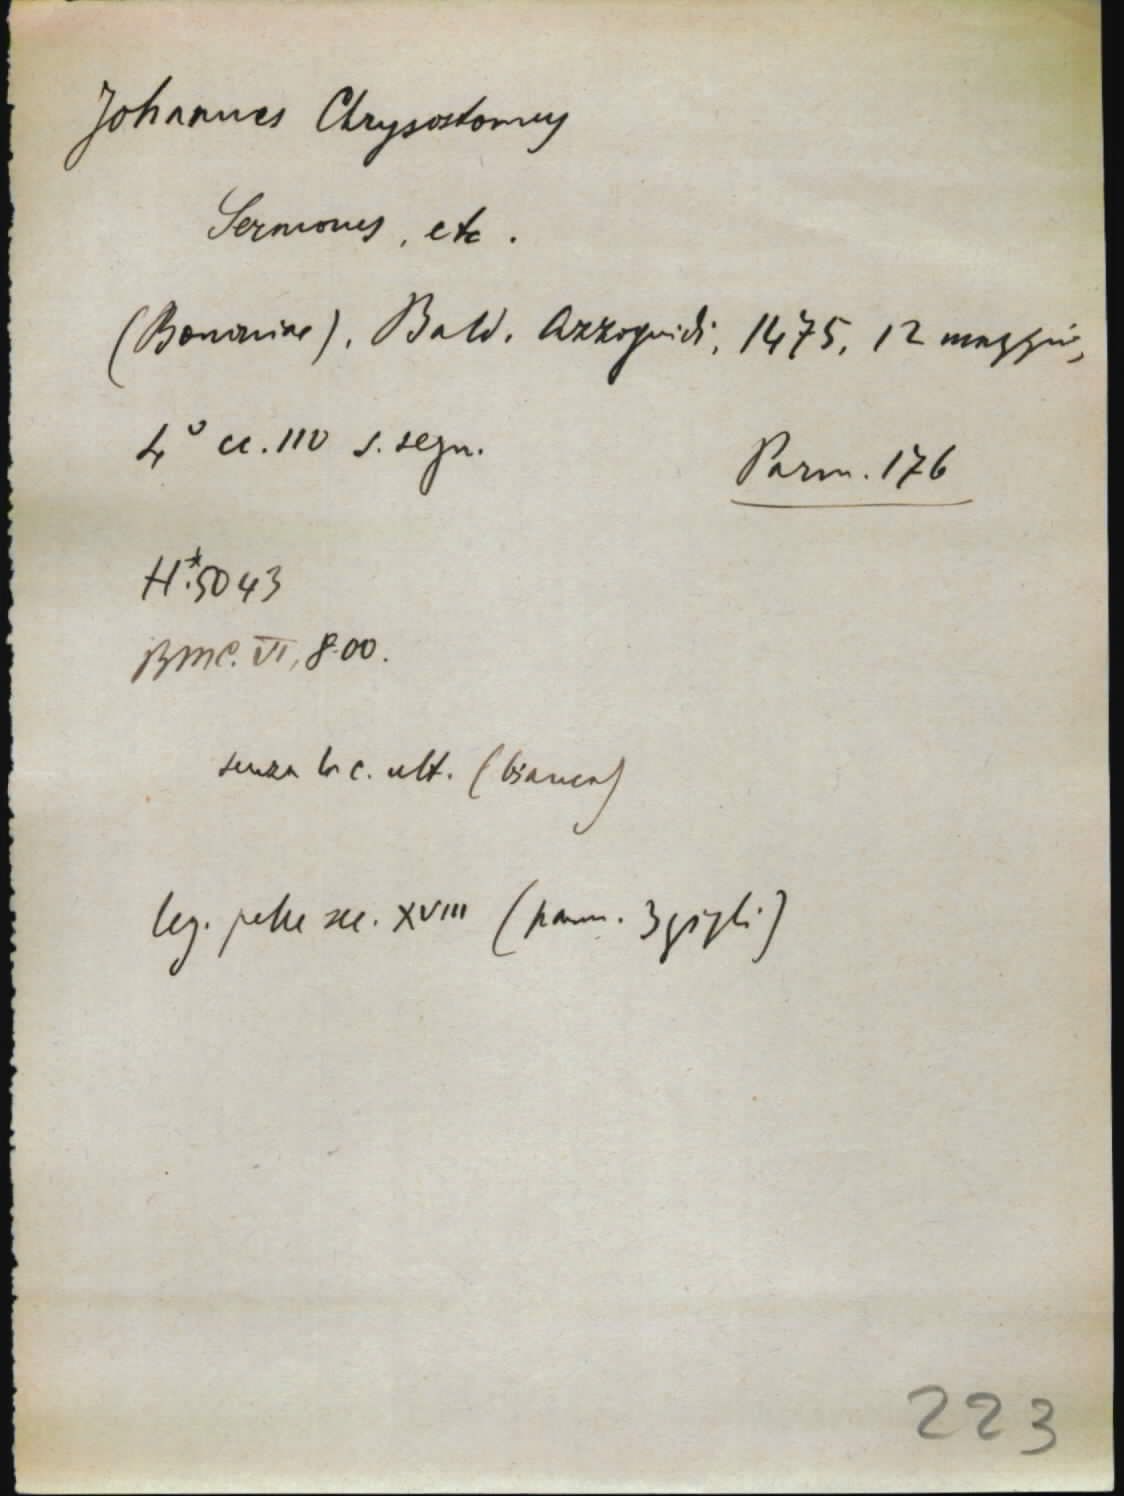 Johannes Chrysostomus
Sermones, etc.
(Bononiae), Bald. Azzoguidi, 1475, 12 maggio,
4° cc. 110 s. segn.
Parm. 176
H*.5043
BMC. VI, 800.
senza la c. ult. (bianca)
leg. pelle sec. XVIII (parm. 3 gigli)
223